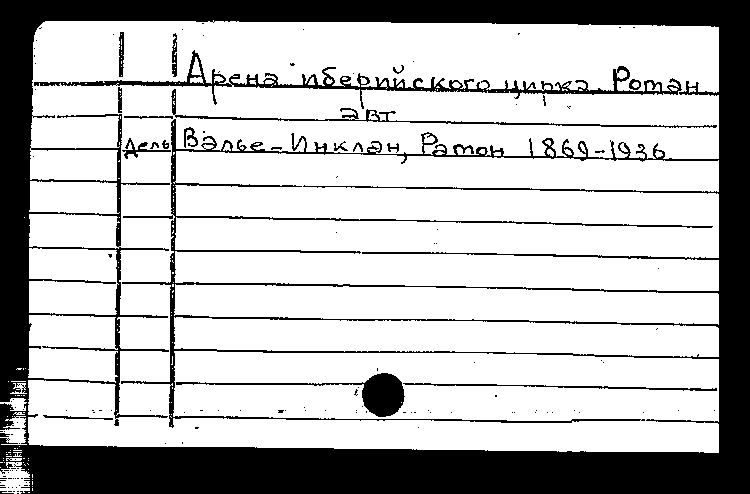 Арена иберийского цирка. Роман
авт
Дель Валье-Инклан, Рамон 1869-1936